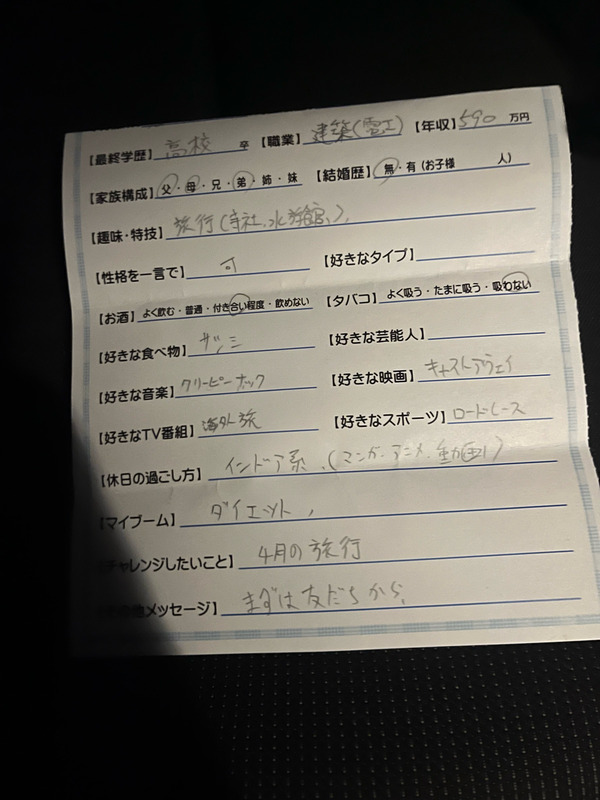 【最終学歴】高校 卒 【職業】建築(電工) 【年収】590 万円
【家族構成】父・母・兄・弟・姉・妹 【結婚歴】無・有(お子様 人)
【趣味・特技】旅行(寺社、水族館、)、
【性格を一言で】 【好きなタイプ】
【お酒】よく飲む・普通・付き合い程度・飲めない 【タバコ】よく吸う・たまに吸う・吸わない
【好きな食べ物】サシミ 【好きな芸能人】
【好きな音楽】クリーピーナッツ 【好きな映画】キャストアウェイ
【好きなTV番組】海外旅 【好きなスポーツ】ロードレース
【休日の過ごし方】インドア系、(マンガ、アニメ、動画)
【マイブーム】ダイエット、
チャレンジしたいこと】4月の旅行
メッセージ】まずは友だちから、